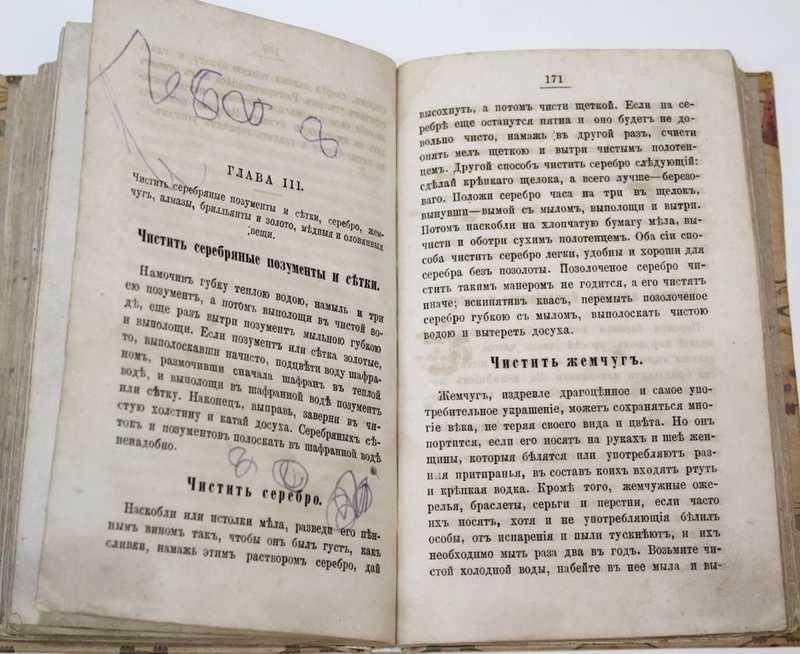 ГЛАВА III.
Чистить серебряные позументы и сѣтки, серебро, жем-
чугъ, алмазы, брилльянты и золото, мѣдныя и оловянныя
вещи.
Чистить серебряные позументы и сѣтки.
Намочивъ губку теплою водою, намыль и три
ею позументъ, а потомъ выполощи въ чистой во-
дѣ, еще разъ вытри позументъ мыльною губкою
и выполощи. Если позументъ или сѣтка золотые,
то, выполоскавши начисто, подцвѣти воду шафра-
номъ, размочивши сначала шафранъ въ теплой
водѣ, и выполощи въ шафранной водѣ позументъ
или сѣтку. Наконецъ, выправь, заверни въ чи-
стую холстину и катай досуха. Серебряныхъ сѣ-
токъ и позументовъ полоскать въ шафранной водѣ
ненадобно.
Чистить серебро.
Наскобли или истолки мѣла, разведи его пѣн-
нымъ виномъ такъ, чтобы онъ былъ густъ, какъ
сливки, намажь этимъ растворомъ серебро, дай
171
высохнуть, а потомъ чисти щеткой. Если на се-
ребрѣ еще останутся пятна и оно будетъ не до-
вольно чисто, намажь въ другой разъ, счисти
опять мелъ щеткою и вытри чистымъ полотен-
цемъ. Другой способъ чистить серебро слѣдующій:
сдѣлай крѣпкаго щелока, а всего лучше—березо-
ваго. Положи серебро часа на три въ щелокъ,
вынувши—вымой съ мыломъ, выполощи и вытри.
Потомъ наскобли на хлопчатую бумагу мѣла, вы-
чисти и оботри сухимъ полотенцемъ. Оба сіи спо-
соба чистить серебро легки, удобны и хороши для
серебра безъ позолоты. Позолоченое серебро чи-
стить такимъ манеромъ не годится, а его чистятъ
иначе; вскипятивъ квасъ, перемыть позолоченое
серебро губкою съ мыломъ, выполоскать чистою
водою и вытереть досуха.
Чистить жемчугъ.
Жемчугъ, издревле драгоцѣнное и самое упо-
требительное украшеніе, можетъ сохраняться мно-
гіе вѣка, не теряя своего вида и цвѣта. Но онъ
портится, если его носятъ на рукахъ и шеѣ жен-
щины, которыя бѣлятся или употребляютъ раз-
ныя притиранья, въ составъ коихъ входятъ ртуть
и крѣпкая водка. Кромѣ того, жемчужные оже-
релья, браслеты, серьги и перстни, если часто
ихъ носятъ, хотя и не употребляющія бѣлилъ
особы, отъ испаренія и пыли тускнѣютъ, и ихъ
необходимо мыть раза два въ годъ. Возьмите чи-
стой холодной воды, набейте въ нее мыла и вы-